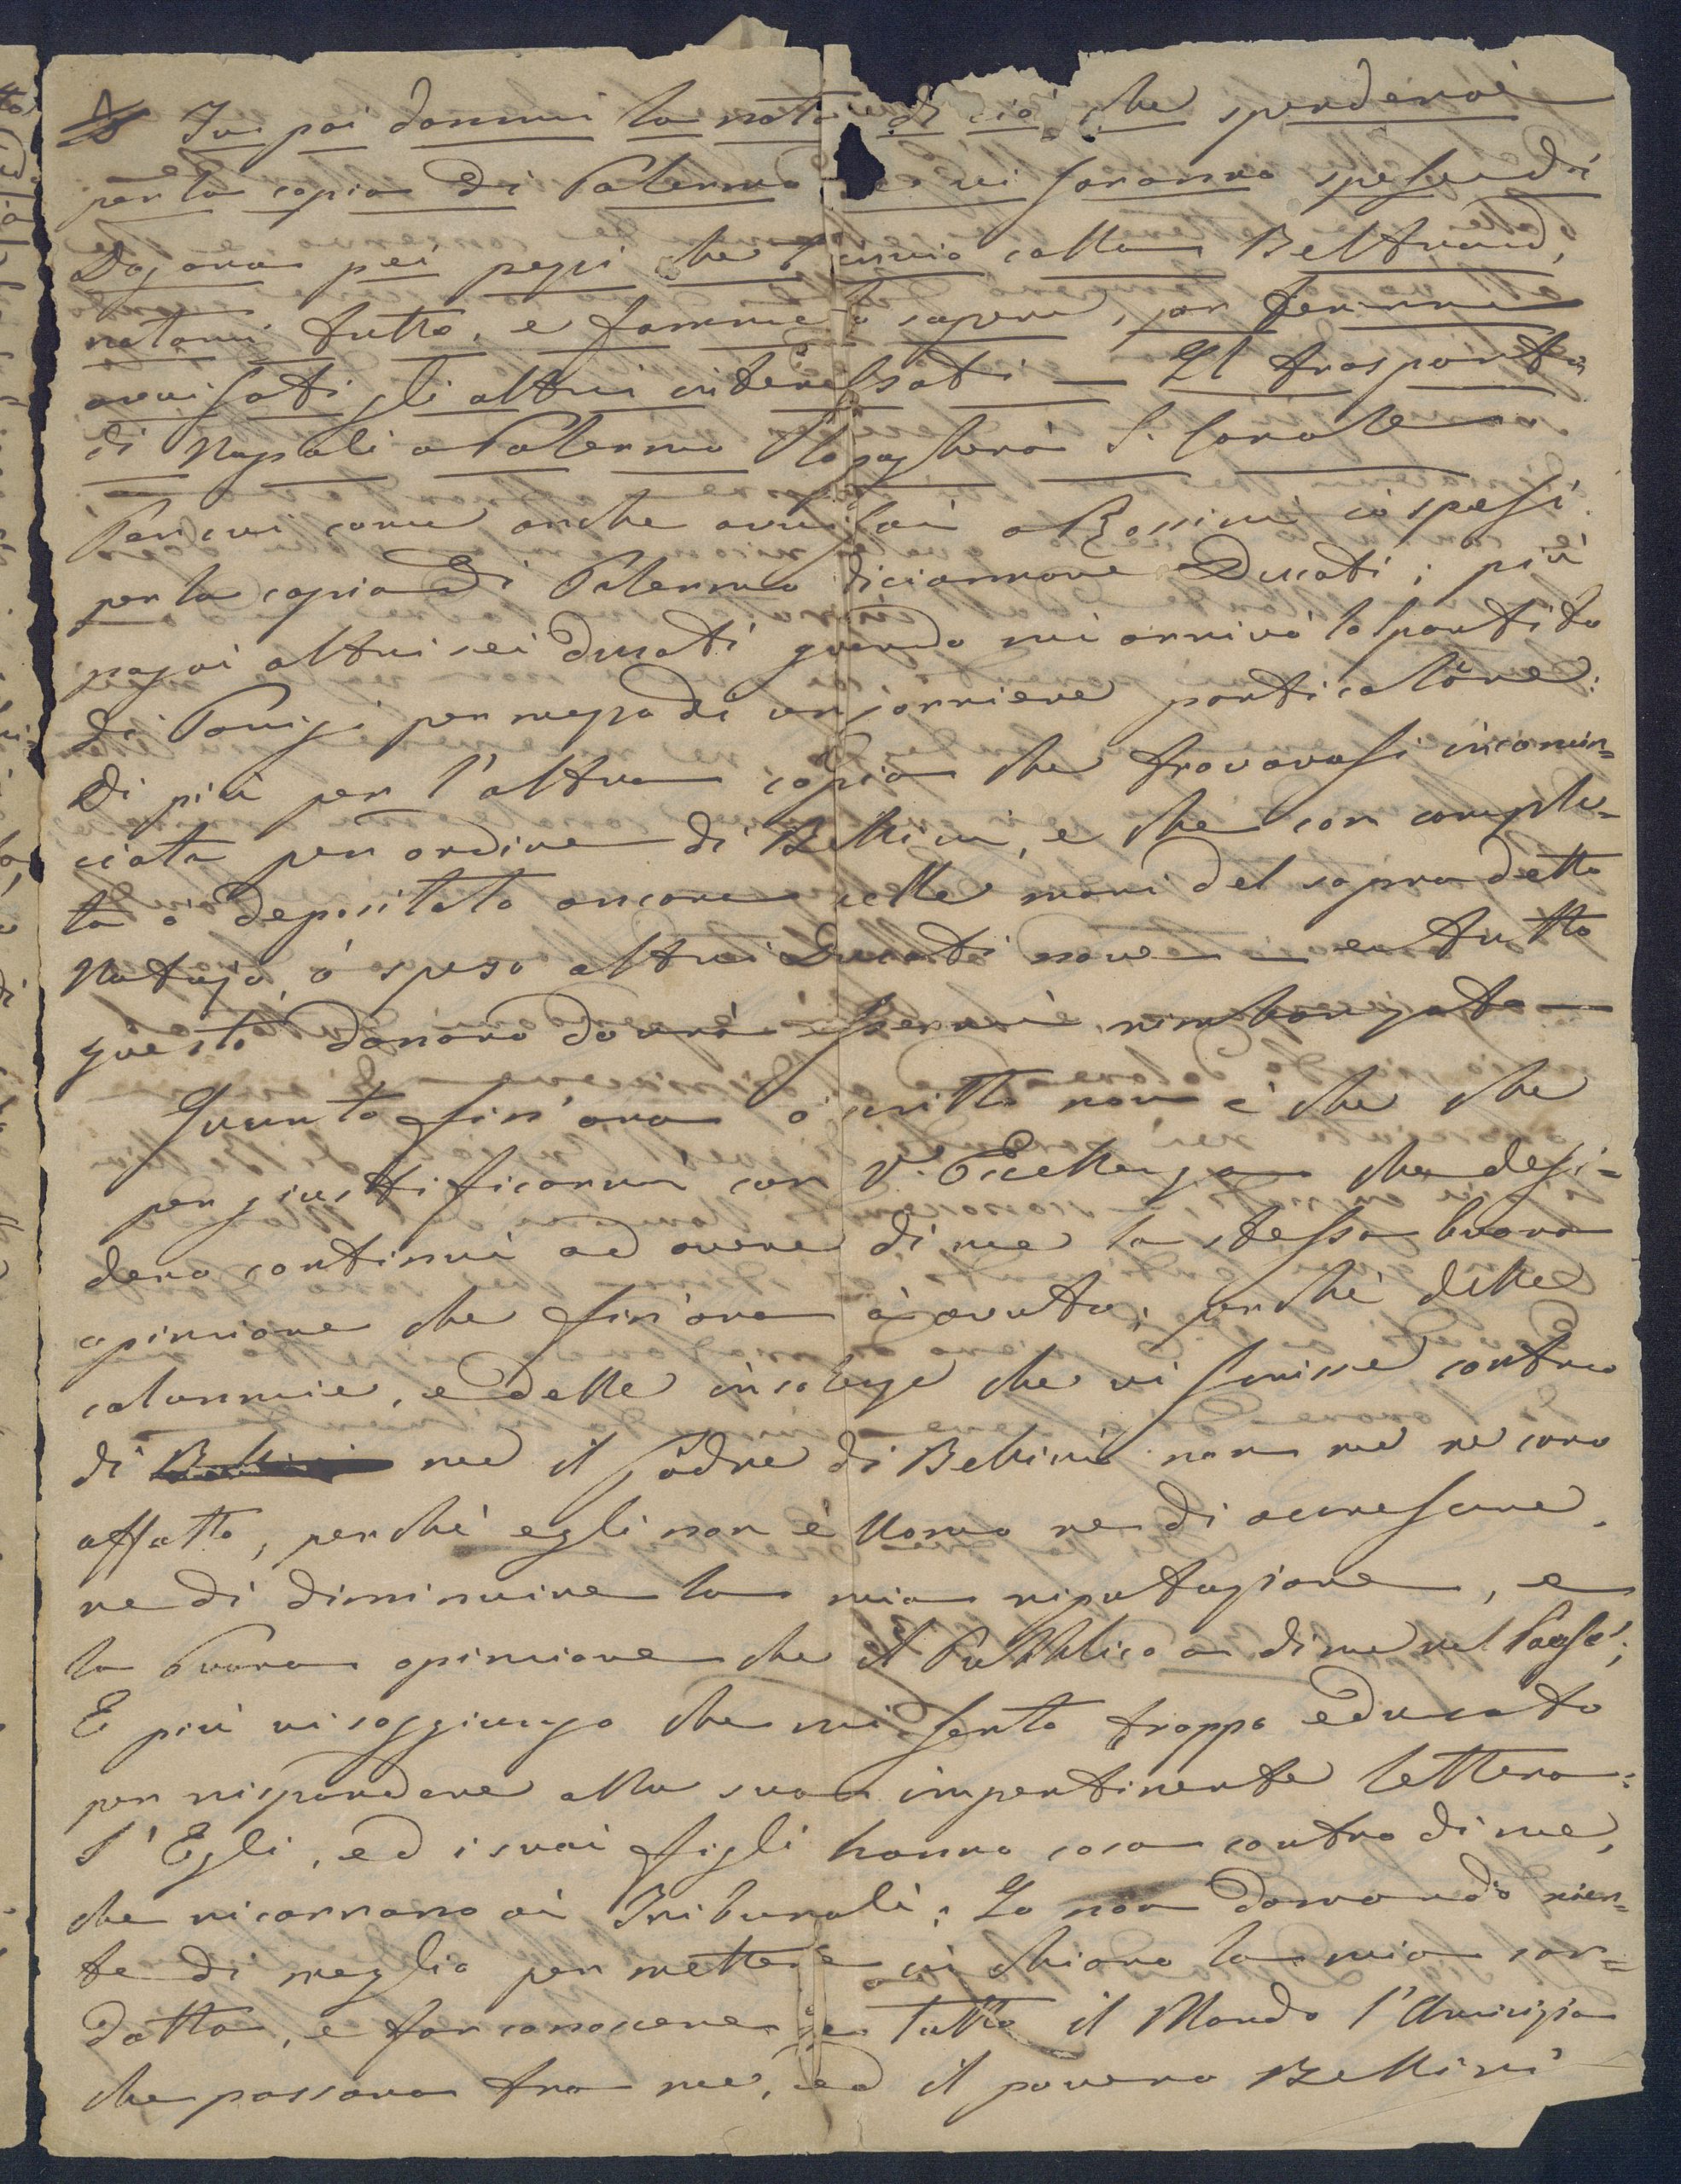 Tu poi dammi la nota di ciò che spenderai
per la copia di Palermo e vi saranno spese di
Dogana pei pezzi che t'invio colla Beltrand,
notami tutto, e fammelo sapere, per farne
avvisati gli altri interessati — Il trasporto
di Napoli a Palermo lo pagherà S. Carlo
Per cui come anche avvisai a Rossini io spesi
per la copia di Palermo diciannove Ducati; più
pagai altri sei ducati quando mi arrivò lo spartito
di Parigi per mezzo di un corriere particolare:
Di più per l'altra copia che trovavasi incomin=
ciata per ordine di Bellini, e che con comple=
ta ò depositata ancora nelle mani del sopradetto
Notajo, ò speso altri Ducati nove — e tutto
questo danaro dovrà essermi rimborzato —
Quanto fin'ora ò scritto non è che che
per giustificarmi con V. Eccellenza che desi=
dero continui ad avere di me la stessa buona
opinione che fin'ora à avuta; perchè delle
calunnie, e delle insolenze che vi scrisse contro
di me il Padre di Bellini non me ne curo
affatto, perchè egli non è Uomo ne di accrescere,
ne di diminuire la mia riputazione, e
la buona opinione che il Pubblico a di me nel Paese;
E più vi soggiungo che mi sento troppo educato
per rispondere alla sua impertinente lettera:
S'Egli, ed i suoi figli hanno cosa contro di me,
che ricorrano ai Tribunali; Io non domando nien=
te di meglio per mettere in chiaro la mia con=
dotta, e far conoscere a tutto il Mondo l'Amicizia
che passava tra me, ed il povero Bellini